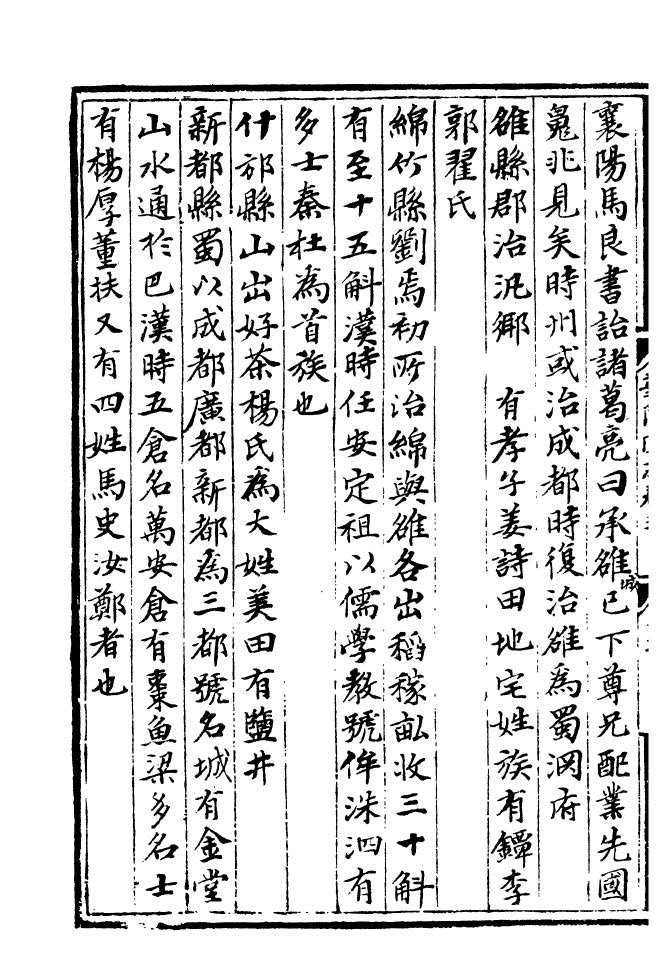 襄陽馬良書詒諸葛亮曰承雒城已下尊兄配業先國
鬼兆見矣時州或治成都時復治雒為蜀淵府
雒縣郡治沉鄉　有孝子姜詩田地宅姓族有鐔李
郭翟氏
綿竹縣劉焉初所治綿與雒各出稻稼畝收三十斛
有至十五斛漢時任安定祖以儒學教號侔洙泗有
多士秦杜為首族也
什邡縣山出好茶楊氏為大姓美田有鹽井
新都縣蜀以成都廣都新都為三都號名城有金堂
山水通於巴漢時五倉名萬安倉有棗魚梁多名士
有楊厚董扶又有四姓馬史汝鄭者也